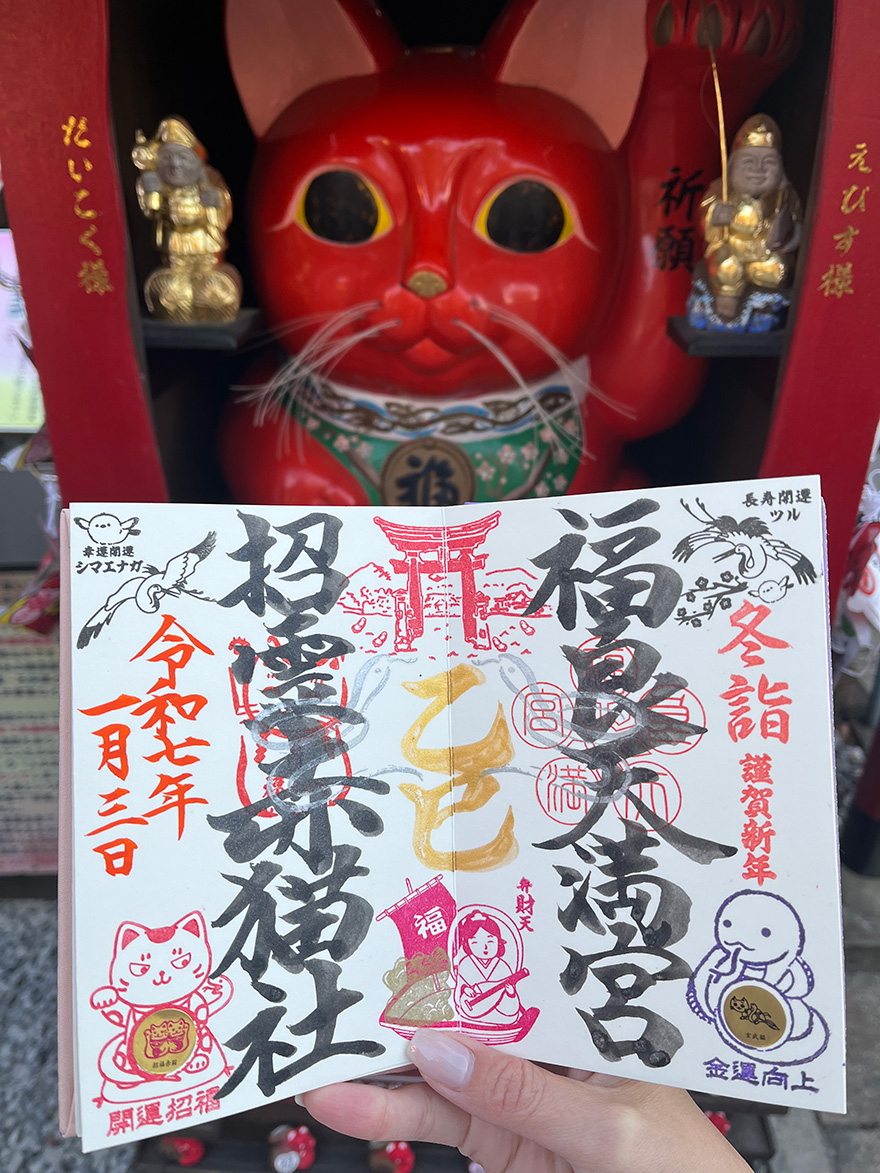 だいこく様
祈願
えびす様
福
長寿開運
ツル
冬詣
謹賀新年
福良天満宮
乙巳
招霊赤猫社
幸運開運
シマエナガ
令和七年
一月三日
福
弁財天
宮
満
天
金運向上
開運招福